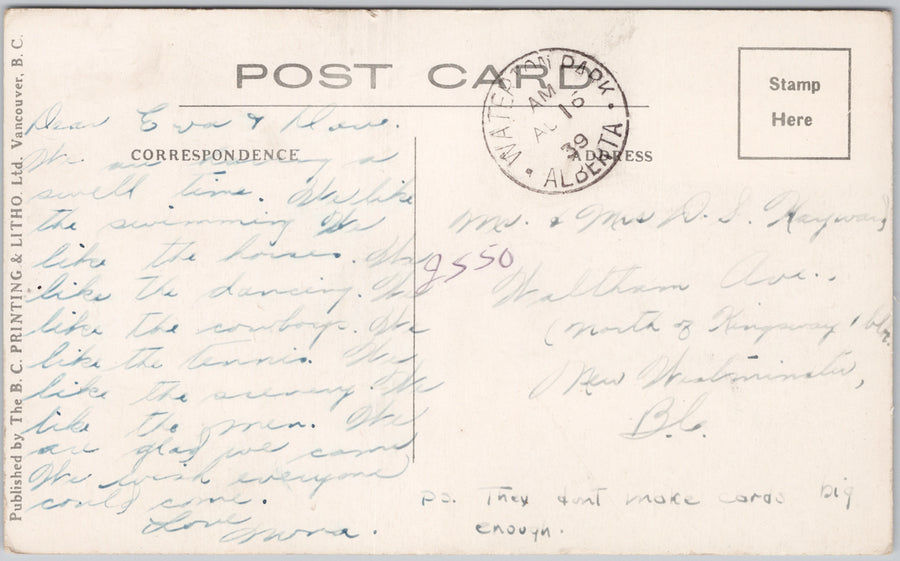 POST CARD
CORRESPONDENCE
ADDRESS
Stamp
Here
WATERTON PARK
ALBERTA
AM
16
AU
39
Published by The B. C. PRINTING & LITHO. Ltd. Vancouver, B. C.
Dear Eva & Dave.
We are having a
swell time. We like
the swimming We
like the horses. We
like the dancing. We
like the cowboys. We
like the tennis. We
like the scenery. We
like the men. We
are glad we came
We wish everyone
could come.
Love
Mona.
Mr. & Mrs D. S. Hayward
Waltham Ave.
(North of Kingsway 1 blk.
New Westminster,
B.C.
PS. They dont make cards big
enough.